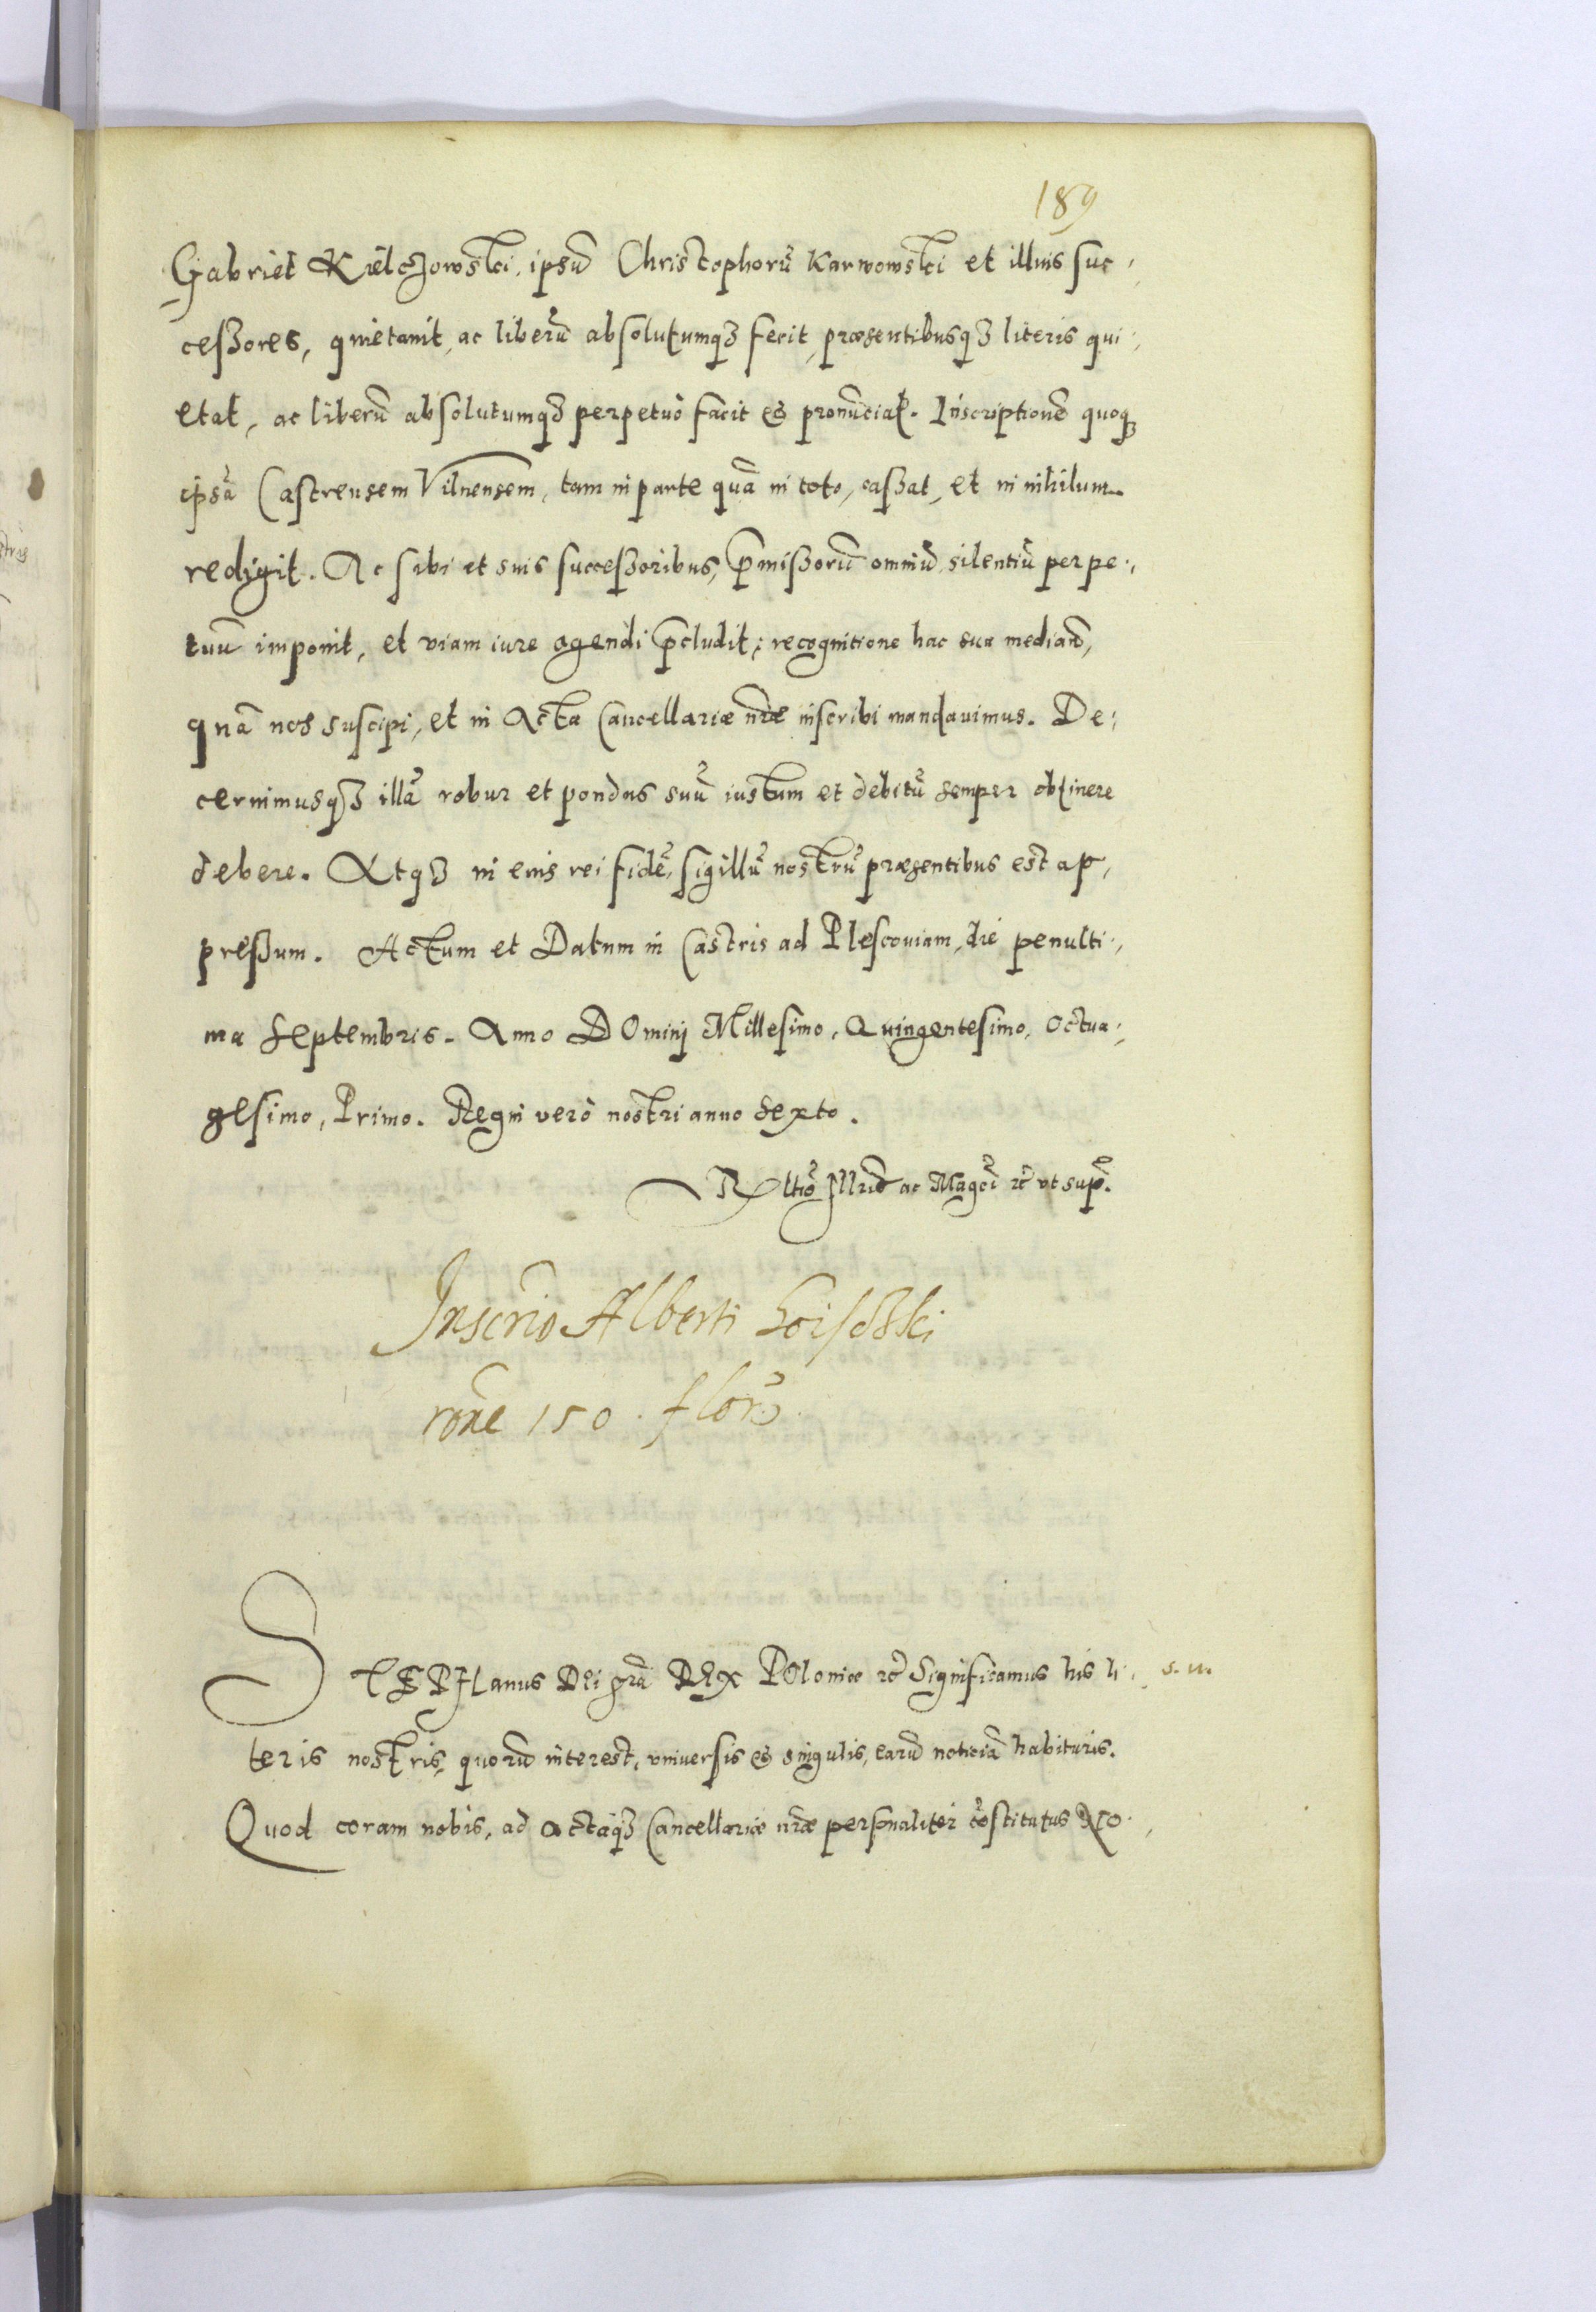 189
Gabriel Kielczowski, ipsũ Christophorũ Karwowski et illius suc,
ceßores, quietauit, ac liberũ absolutumqꝫ fecit, præsentibusqꝫ literis qui,
etat, ac liberũ absolutumqꝫ perpetuò facit et pronũciat. Inscriptionẽ quoqꝫ
ipsã Castrensem Vilnensem, tam in parte quã in toto, caßat, et in nihilum
redigit. Ac sibi et suis succeßoribus, p̃mißorũ omniũ silentiũ perpe,
tuũ imponit, et viam iure agendi p̃cludit; recognitione hac sua median̄,
quã nos suscipi, et in Acta Cancellariæ nr̃æ inscribi mandauimus. De:
cernimusqꝫ illã robur et pondus suũ iustum et debitũ semper obtinere
debere. Atqꝫ in eius rei fidẽ, sigillũ nostrũ præsentibus est ap,
preßum. Actum et Datum in Castris ad Plescouiam, die penulti,
ma Septembris. Anno DOmini Millesimo, Quingentesimo, Octua,
gesimo, Primo. Regni verò nostri anno Sexto.
Rltio Illris ac Magci ꝛc̃ vt sup.
Inscr̃io Alberti
rõne 150. flor.
STEPHanus DEi gr̃a REX POloniæ ꝛc̃ Significamus his li, s. n.
teris nostris, quorũ interest, vniuersis et singulis, earũ noticiã habituris.
Quod coram nobis, ad actaqꝫ Cancellariæ nr̃æ personaliter cõstitutus